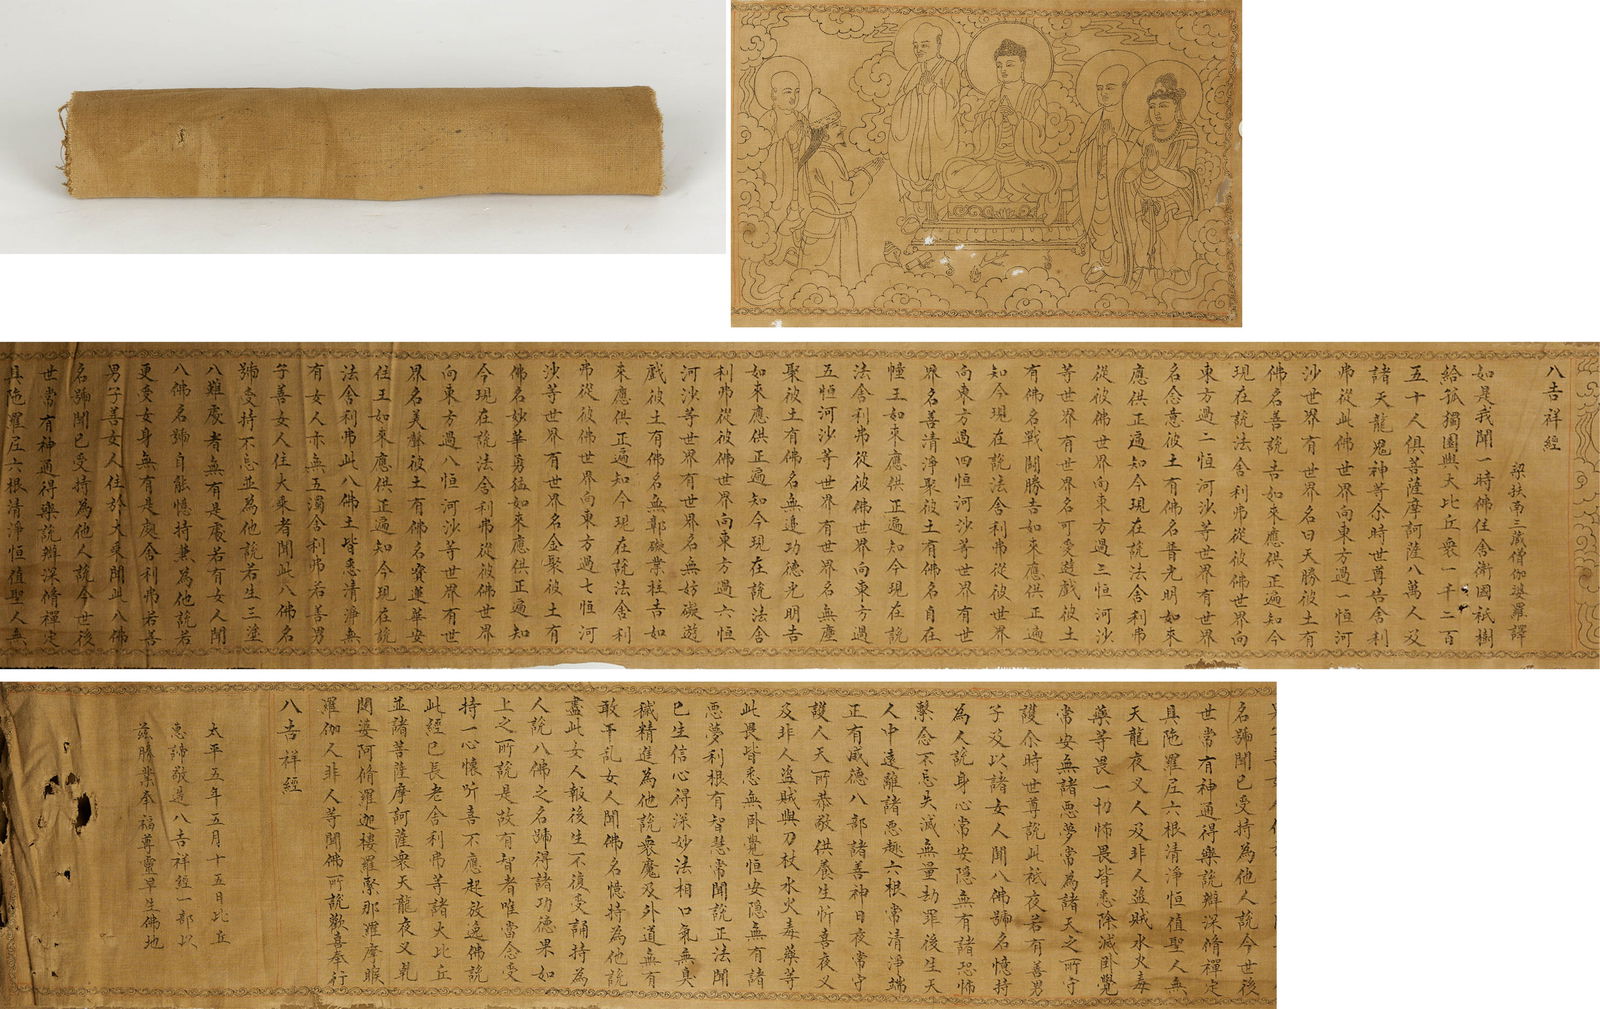 八吉祥經
梁扶南三藏僧伽婆羅譯
如是我聞一時佛住舍衛國祇樹
給孤獨園與大比丘衆一千二百
五十人俱菩薩摩訶薩八萬人及
諸天龍鬼神等尒時世尊告舍利
弗從此佛世界向東方過一恒河
沙世界有世界名曰天勝彼土有
佛名善說吉如來應供正遍知今
現在說法舍利弗從彼佛世界向
東方過二恒河沙等世界有世界
名念意彼土有佛名普光明如來
應供正遍知今現在說法舍利弗
從彼佛世界向東方過三恒河沙
等世界有世界名可愛遊戲彼土
有佛名戰鬪勝吉如來應供正遍
知今現在說法舍利弗從彼世界
向東方過四恒河沙等世界有世
界名善清淨聚彼土有佛名自在
幢王如來應供正遍知今現在說
法舍利弗從彼佛世界向東方過
五恒河沙等世界有世界名無塵
聚彼土有佛名無邊功德光明吉
如來應供正遍知今現在說法舍
利弗從彼佛世界向東方過六恒
河沙等世界有世界名無妨礙遊
戲彼土有佛名無鄣礙業柱吉如
來應供正遍知今現在說法舍利
弗從彼佛世界向東方過七恒河
沙等世界有世界名金聚彼土有
佛名妙華勇猛如來應供正遍知
今現在說法舍利弗從彼佛世界
向東方過八恒河沙等世界有世
界名美聲彼土有佛名寶蓮華安
住王如來應供正遍知今現在說
法舍利弗此八佛土皆悉清淨無
有女人亦無五濁舍利弗若善男
子善女人住大乘者聞此八佛名
號受持不忘並為他說若生三塗
八難處者無有是處若有女人聞
八佛名號自能憶持兼為他說若
更受女身無有是處舍利弗若善
男子善女人住於大乘聞此八佛
名號聞已受持為他人說今世後
世常有神通得樂說辯深脩禪定
具陁羅尼六根清淨恒值聖人無
名號聞已受持為他人說今世後
世常有神通得樂說辯深脩禪定
具陁羅尼六根清淨恒值聖人無
天龍夜叉人及非人盜賊水火毒
藥等畏一切怖畏皆悉除滅卧覺
常安無諸惡夢常為諸天之所守
護尒時世尊說此祇夜若有善男
子及以諸女人聞八佛號名憶持
為人說身心常安隱無有諸恐怖
繫念不忘失滅無量劫罪後生天
人中遠離諸惡趣六根常清淨端
正有威德八部諸善神日夜常守
護人天所恭敬供養生忻喜夜叉
及非人盜賊與刀杖水火毒藥等
此畏皆悉無卧覺恒安隱無有諸
惡夢利根有智慧常聞說正法聞
已生信心得深妙法相口氣無臭
穢精進為他說衆魔及外道無有
敢干乱女人聞佛名憶持為他說
盡此女人報後生不復受誦持為
人說八佛之名號得諸功德果如
上之所說是故有智者唯當念受
持一心懷听喜不應起放逸佛說
此經已長老舍利弗等諸大比丘
並諸菩薩摩訶薩衆天龍夜叉乹
闥婆阿脩羅迦樓羅緊那羅摩睺
羅伽人非人等聞佛所說歡喜奉行
八吉祥經
太平五年五月十五日比丘
惠諦敬造八吉祥經一部以
茲勝業奉福尊靈早生佛地